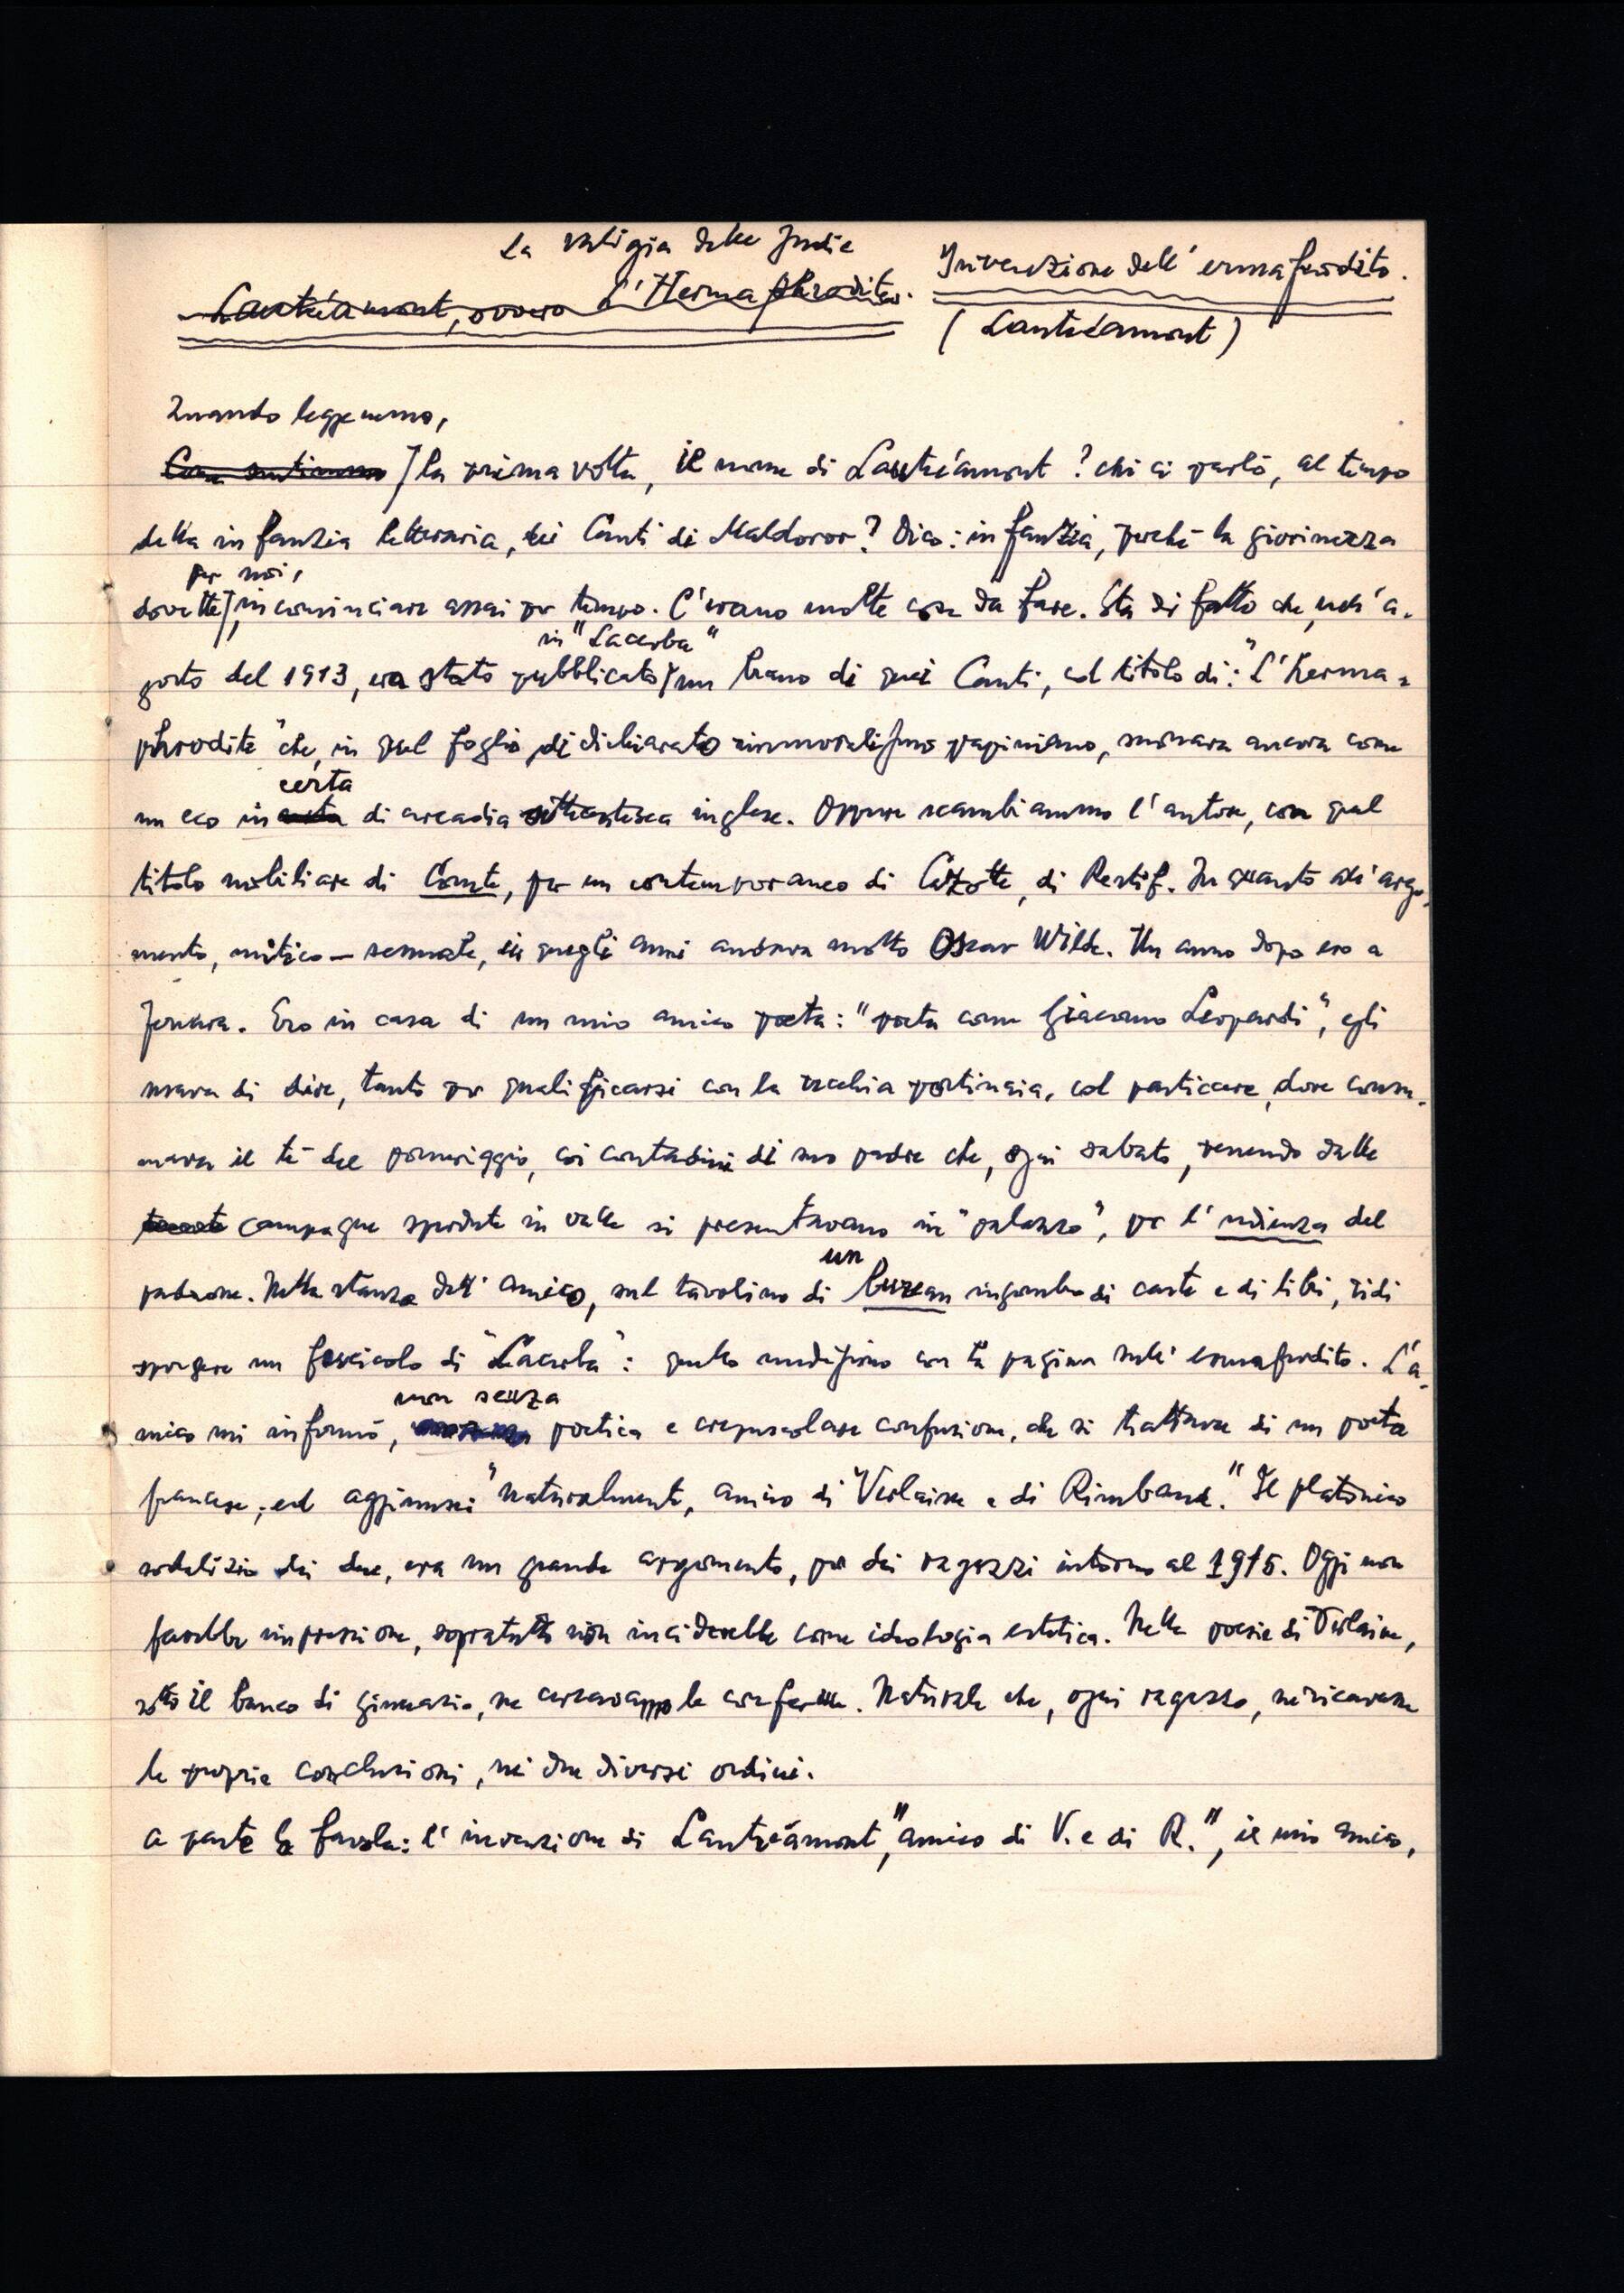 La valigia delle Indie
Lautréamont, ovvero l'Hermaphrodite.
Invenzione dell'ermafrodito.
(Lautréamont)
Quando leggemmo,
la prima volta, il nome di Lautréamont? chi ci parlò, al tempo
della infanzia letteraria, dei Canti di Maldoror? Dico: infanzia, perché la giovinezza
per noi,
dovette, incominciare assai per tempo. C'erano molte cose da fare. Sta di fatto che, nell'a-
in "Lacerba"
gosto del 1913, era stato pubblicato un brano di quei Canti, col titolo di: "L'Herma=
phrodite" che, in quel foglio di dichiarato immoralismo papiniano, suonava ancora come
certa
un eco in di arcadia settecentesca inglese. Oppure scambiammo l'autore, con quel
titolo nobiliare di Comte, per un contemporaneo di Cazotte, di Restif. In quanto all'argo-
mento, mitico-sessuale, in quegli anni andava molto Oscar Wilde. Un anno dopo ero a
Ferrara. Ero in casa di un mio amico poeta: "poeta come Giacomo Leopardi", egli
usava di dire, tanto per qualificarsi con la vecchia portinaia, col pasticcere, dove consu-
mava il tè del pomeriggio, coi contadini di suo padre che, ogni sabato, venendo dalle
campagne sperdute in valle si presentavano in "palazzo", per l'udienza del
un
padrone. Nella stanza dell'amico, sul tavolino di bureau ingombro di carte e di libri, vidi
sporgere un fascicolo di "Lacerba": quello con la pagina sull'ermafrodito. L'a-
non senza
mico mi informò, poetica e crepuscolare confusione, che si trattava di un poeta
francese; ed aggiunse: "naturalmente, amico di Verlaine e di Rimbaud." Il platonico
sodalizio dei due, era un grande argomento, per dei ragazzi intorno al 1915. Oggi non
farebbe impressione, sopratutto non inciderebbe come ideologia estetica. Nelle poesie di Verlaine,
sotto il banco di ginnasio, ne cercavamo le conferme. Naturale che, ogni ragazzo, ne ricavasse
le proprie conclusioni, nei due diversi ordini.
a parte la favola: l'invenzione di Lautréamont, "amico di V. e di R.", il mio amico,